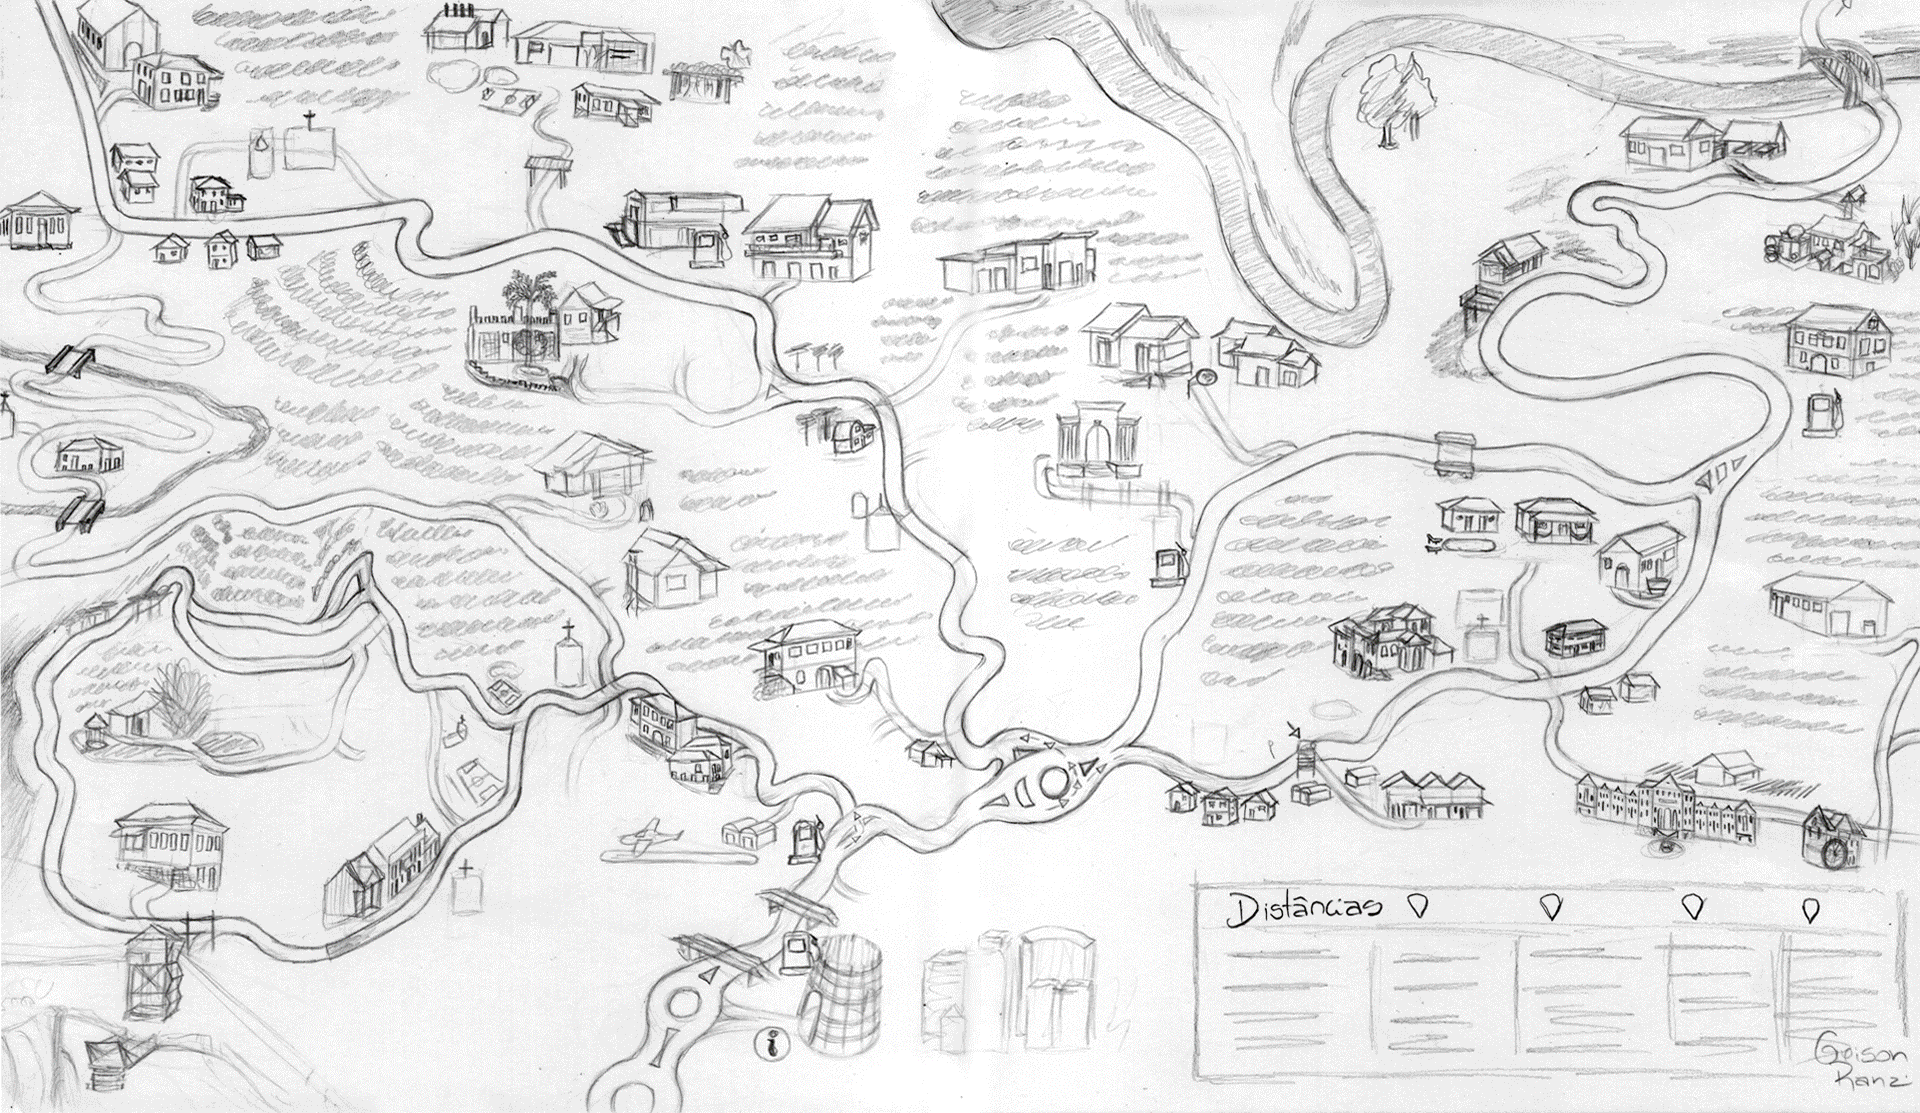 Distâncias
i
Geison
Ranzi